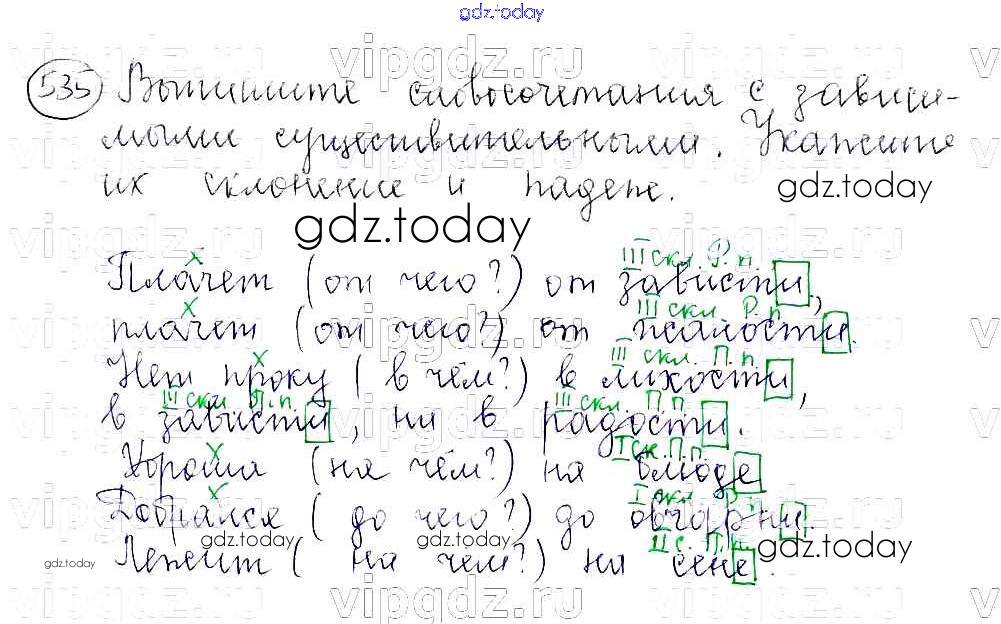 gdz.today
535 Выпишите словосочетания с зависи-
мыми существительными. Укажите
их склонение и падеж.
gdz.today
gdz.today
III скл. Р. п.
Плачет (от чего?) от зависти,
III скл. Р. п.
плачет (от чего?) от жалости.
III скл. П. п.
Нет проку (в чём?) в лихости,
III скл. П. п. III скл. П. п.
в зависти, ни в радости.
I ск. П. п.
Хороша (на чём?) на блюде
I скл. Р.
Добрался (до чего?) до овчарни.
gdz.today gdz.today II с. П. п. gdz.today
Лежит (на чем?) на сене.
gdz.today
vipgdz.ru vipgdz.ru vipgdz.ru